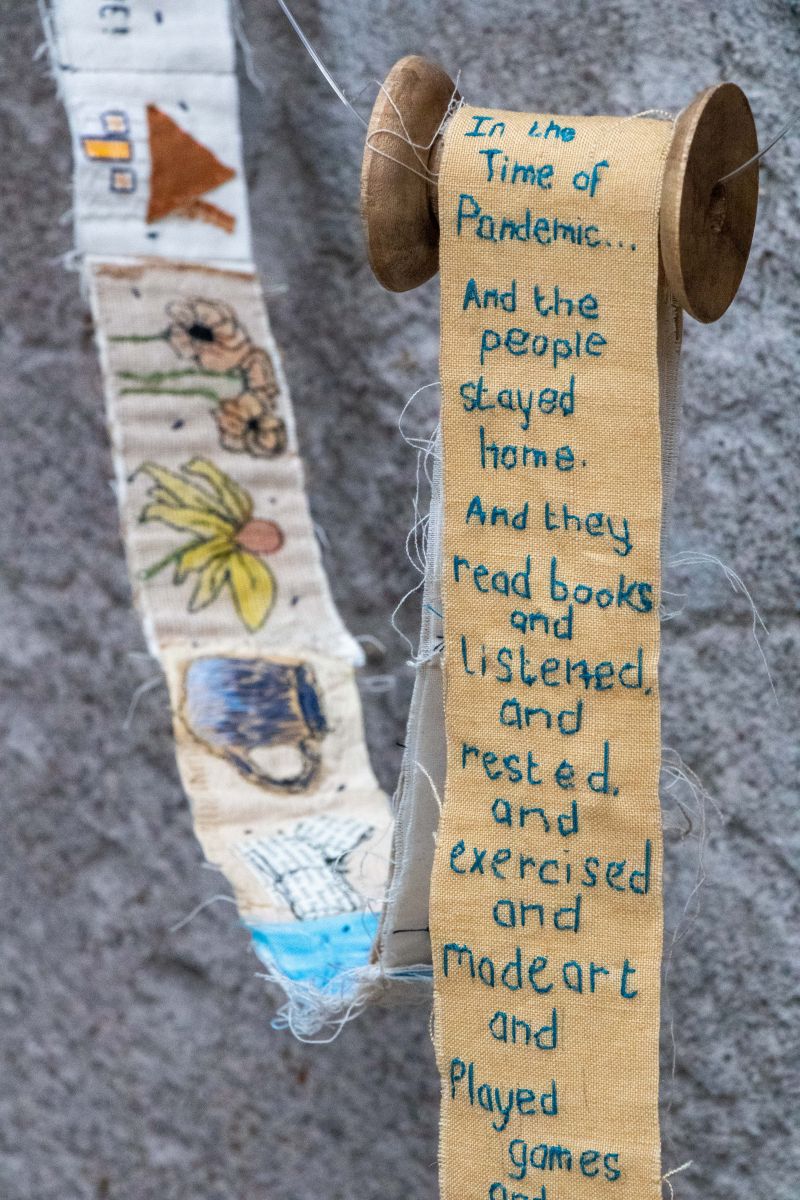 In the
Time of
Pandemic...
And the
people
stayed
home.
And they
read books
and
listened,
and
rested,
and
exercised
and
made art
and
Played
games
and